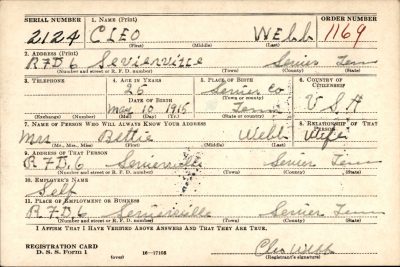 SERIAL NUMBER 1. NAME (Print) ORDER NUMBER
2124 CLEO Webb 1169
(First) (Middle) (Last)
2. ADDRESS (Print)
RFD 6 Sevierville Sevier Tenn
(Number and street or R. F. D. number) (Town) (County) (State)
3. TELEPHONE 4. AGE IN YEARS 5. PLACE OF BIRTH 6. COUNTRY OF CITIZENSHIP
25 Sevier Co
DATE OF BIRTH (Town or county)
May 10 1915 Tenn U.S.A
(Exchange) (Number) (Mo.) (Day) (Yr.) (State or country)
7. NAME OF PERSON WHO WILL ALWAYS KNOW YOUR ADDRESS 8. RELATIONSHIP OF THAT PERSON
Mrs Bettie Webb Wife
(Mr., Mrs., Miss) (First) (Middle) (Last)
9. ADDRESS OF THAT PERSON
R.F.D.6 Sevierville Sevier Tenn
(Number and street or R. F. D. number) (Town) (County) (State)
10. EMPLOYER'S NAME
Self
11. PLACE OF EMPLOYMENT OR BUSINESS
R.F.D.6 Sevierville Sevier Tenn
(Number and street or R. F. D. number) (Town) (County) (State)
I AFFIRM THAT I HAVE VERIFIED ABOVE ANSWERS AND THAT THEY ARE TRUE.
REGISTRATION CARD
D. S. S. Form 1 16—17105 Cleo Webb
(Registrant's signature)